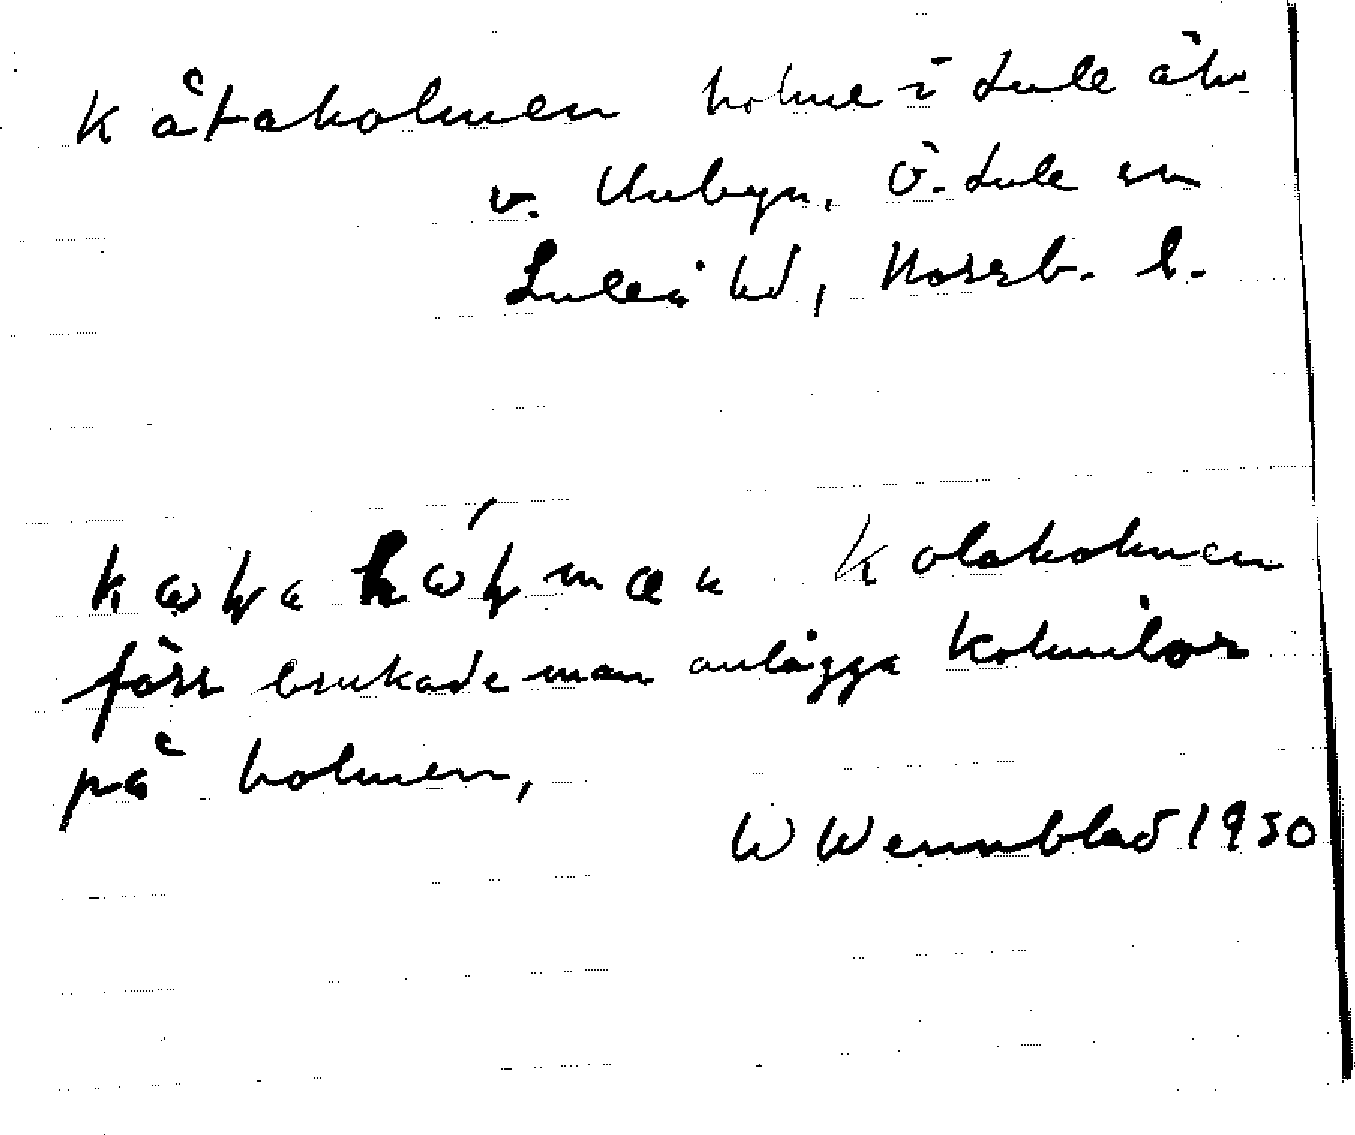 Kåtaholmen holme i Lule älv
v. Unbyn, Ö. Lule sn
Luleå hd, Norrb. l.
Kolaholmen
förr brukade man anlägga kolmilor
på holmen,
W Wennblad 1930